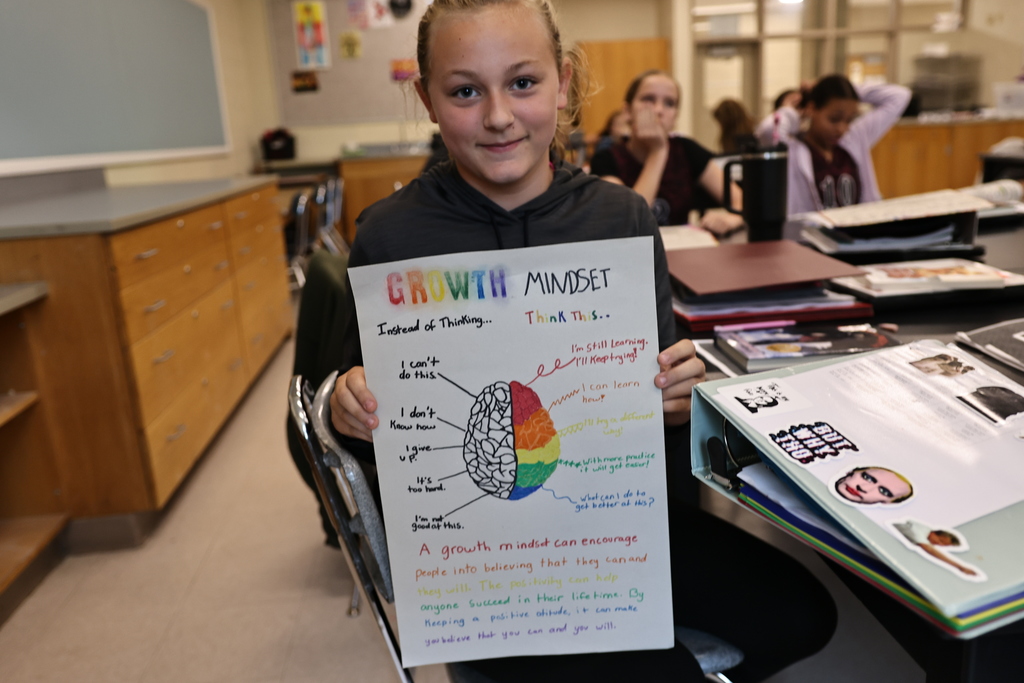 GROWTH MINDSET
Instead of Thinking...
Think This..
I can't
do this.
I don't
Know how
I give
up.
It's
too hard.
I'm not
good at this.
I'm Still Learning.
I'll Keep trying!
I can learn
how!
I'll try a different
way!
With more practice
it will get easier!
What can I do to
get better at this?
A growth mindset can encourage
people into believing that they can and
they will. The positivity can help
anyone succeed in their lifetime. By
Keeping a positive attitude, it can make
you believe that you can and you will.